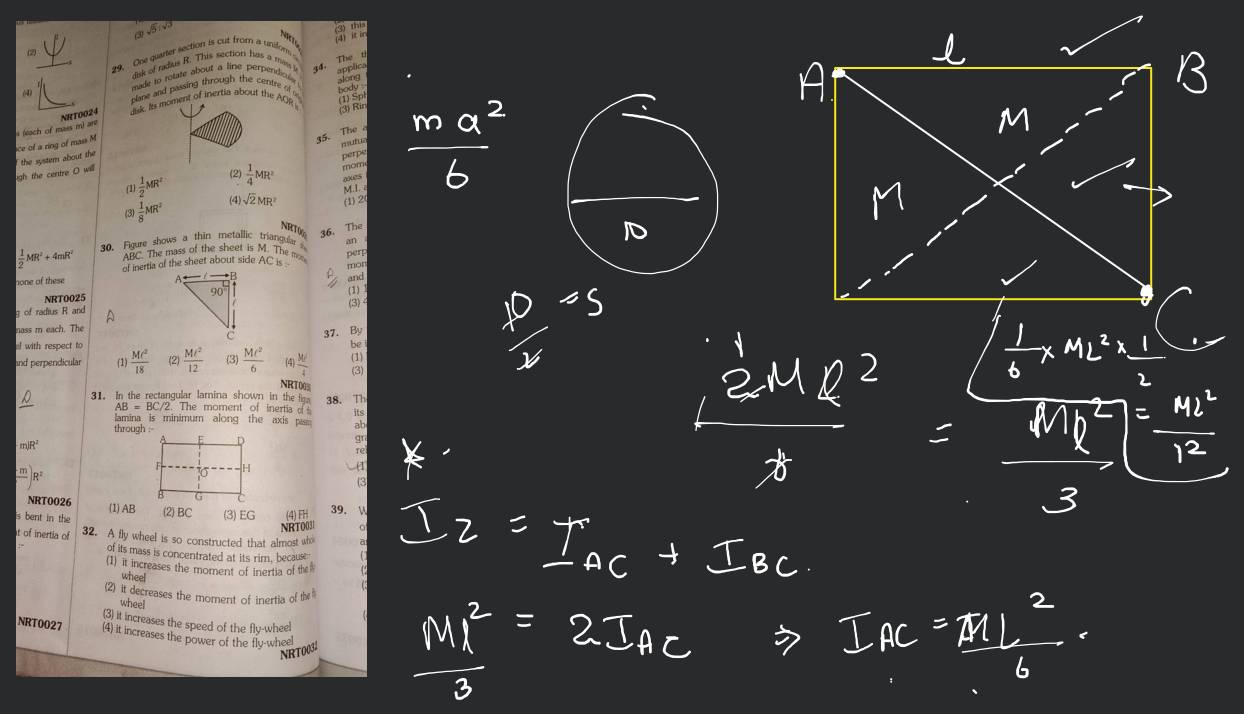 (2)
(4)
NRT0024
s (each of mass m) are
ce of a ring of mass M
f the system about the
gh the centre O will
1/2 MR² + 4mR²
none of these
NRT0025
g of radius R and
mass m each. The
el with respect to
and perpendicular
m)R²
m)R²
NRT0026
is bent in the
t of inertia of
:-
NRT0027
(3) √5 : √3
29. One quarter section is cut from a uniform
disk of radius R. This section has a mass
made to rotate about a line perpendicular
plane and passing through the centre of
disk. Its moment of inertia about the
(1) 1/2 MR²
(2) 1/4 MR²
(3) 1/8 MR²
(4) √2 MR²
30. Figure shows a thin metallic triangular
ABC. The mass of the sheet is M. The
of inertia of the sheet about side AC is :-
A l B
90°
l
C
(1) Mℓ²/18
(2) Mℓ²/12
(3) Mℓ²/6
(4)
31. In the rectangular lamina shown in the
AB = BC/2. The moment of inertia of
lamina is minimum along the axis
through :-
A E D
F O H
B G C
(1) AB
(2) BC
(3) EG
(4) FH
32. A fly wheel is so constructed that almost
of its mass is concentrated at its rim, because:-
(1) it increases the moment of inertia of the
wheel
(2) it decreases the moment of inertia of the
wheel
(3) it increases the speed of the fly-wheel
(4) it increases the power of the fly-wheel
NRT0032
(3) this
(4) it in
34. The
applica
along
body
(1)
(3)
35. The
mutua
perpe
mom
axes
M.I.
(1)
36. The
an
perp
mon
and
(1)
(3)
37. By
be i
(1)
(3)
38. Th
its
ab
(3
39.
ma²/6
D
D/2 = S
A l B
M
M
C
2Mℓ² = Mℓ²/3
1/6 × ML² × 1/2
= ML²/12
* .
Iz = IAC + IBC.
Mℓ²/3 = 2IAC ⇒ IAC = ML²/6 .